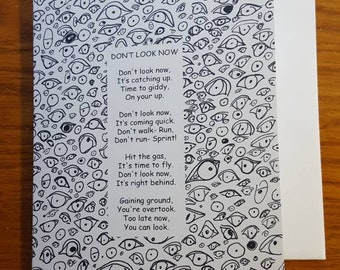 DON'T LOOK NOW
Don't look now,
It's catching up.
Time to giddy,
On your up.
Don't look now,
It's coming quick.
Don't walk- Run,
Don't run- Sprint!
Hit the gas,
It's time to fly.
Don't look now,
It's right behind.
Gaining ground,
You're overtook.
Too late now,
You can look.